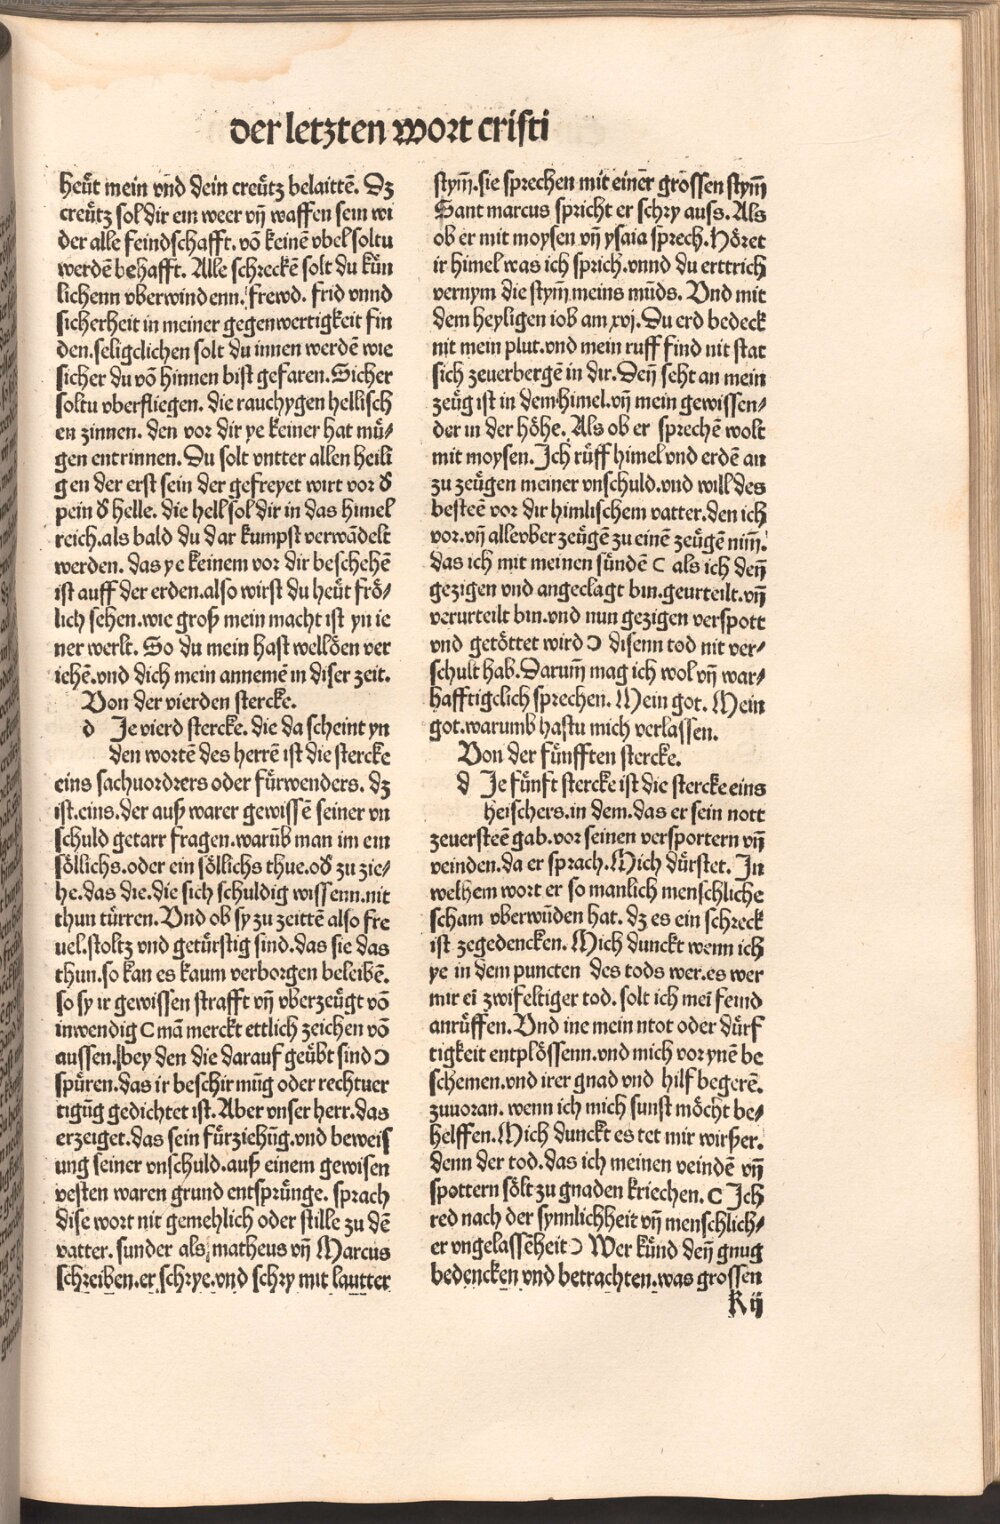 der letzten wort cristi
heüt mein vnd dein creütz belaittē. Dz
creütz sol dir ein weer vn̄ waffen sein wi
der alle feindschafft. vō keinē vbel soltu
werdē behafft. Alle schreckē solt du kün
lichenn vberwindenn. frewd. frid vnnd
sicherheit in meiner gegenwertigkeit fin
den. seligclichen solt du innen werdē wie
sicher du vō hinnen bist gefaren. Sicher
soltu vberfliegen. die rauchygen hellisch
en zinnen. den vor dir ye keiner hat mü⸗
gen entrinnen. Du solt vntter allen heili
gen der erst sein der gefreyet wirt vor d̄
pein d̄ helle. die hell sol dir in das himel
reich. als bald du dar kumpst verwādelt
werden. das ye keinem vor dir beschehē
ist auff der erden. also wirst du heüt frö⸗
lich sehen. wie groß mein macht ist yn ie
ner werlt. So du mein hast wellöen ver
iehē. vnd dich mein annemē in diser zeit.
Von der vierden stercke.
d Je vierd stercke. die da scheint yn
den wortē des herrē ist die stercke
eins sachuordrers oder fürwenders. dz
ist. eins. der auß warer gewissē seiner vn
schuld getarr fragen. warūb man im ein
söllichs. oder ein söllichs thue. od̄ zu zie⸗
he. das die. die sich schuldig wissenn. nit
thun türren. Vnd ob sy zu zeittē also fre
uel. stoltz vnd getürstig sind. das sie das
thun. so kan es kaum verborgen beleibē.
so sy ir gewissen strafft vn̄ vberzeügt vō
inwendig ( mā merckt ettlich zeichen vō
aussen. bey den die darauf geübt sind )
spüren. das ir beschirmūg oder rechtuer
tigūg gedichtet ist. Aber vnser herr. das
erzeiget. das sein fürziehūg. vnd beweis
ung seiner vnschuld. auß einem gewisen
vesten waren grund entsprünge. sprach
dise wort nit gemehlich oder stille zu dē
vatter. sunder als matheus vn̄ Marcus
schreiben. er schrye. vnd schry mit lautter
stym̄. sie sprechen mit einer grossen stym̄
Sant marcus spricht er schry auss. Als
ob er mit moysen vn̄ ysaia sprech. Höret
ir himel was ich sprich. vnnd du erttrich
vernym die stym̄ meins mūds. Vnd mit
dem heyligen iob am xvj. Du erd bedeck
nit mein plut. vnd mein ruff find nit stat
sich zeuerbergē in dir. Den̄ seht an mein
zeüg ist in dem himel. vn̄ mein gewissen⸗
der in der höhe. Als ob er sprechē wolt
mit moysen. Ich rüff himel vnd erdē an
zu zeügen meiner vnschuld. vnd will des
besteē vor dir himlischem vatter. den ich
vor. vn̄ alle vber zeügē zu einē zeügē nim̄.
das ich mit meinen sündē ( als ich den̄
gezigen vnd angeclagt bin. geurteilt. vn̄
verurteilt bin. vnd nun gezigen verspott
vnd getöttet wird ) disenn tod nit ver⸗
schult hab. Darum̄ mag ich wol vn̄ war⸗
hafftigclich sprechen. Mein got. Mein
got. warumb hastu mich verlassen.
Von der fünfften stercke.
d Je fünft stercke ist die stercke eins
heischers. in dem. das er sein nott
zeuersteē gab. vor seinen versportern vn̄
veinden. da er sprach. Mich dürstet. In
welhem wort er so manlich menschliche
scham vberwūden hat. dz es ein schreck
ist zegedencken. Mich dunckt wenn ich
ye in dem puncten des tods wer. es wer
mir eī zwifeltiger tod. solt ich meī feind
anrüffen. Vnd ine mein ntot oder dürf
tigkeit entplössenn. vnd mich vor ynē be
schemen. vnd irer gnad vnd hilf begerē.
zuuoran. wenn ich mich sunst möcht be⸗
helffen. Mich dunckt es tet mir wirßer.
denn der tod. das ich meinen veindē vn̄
spottern sölt zu gnaden kriechen. ( Ich
red nach der synnlichheit vn̄ menschlich⸗
er vngelassēheit ) Wer künd den̄ gnug
bedencken vnd betrachten. was grossen
K ij